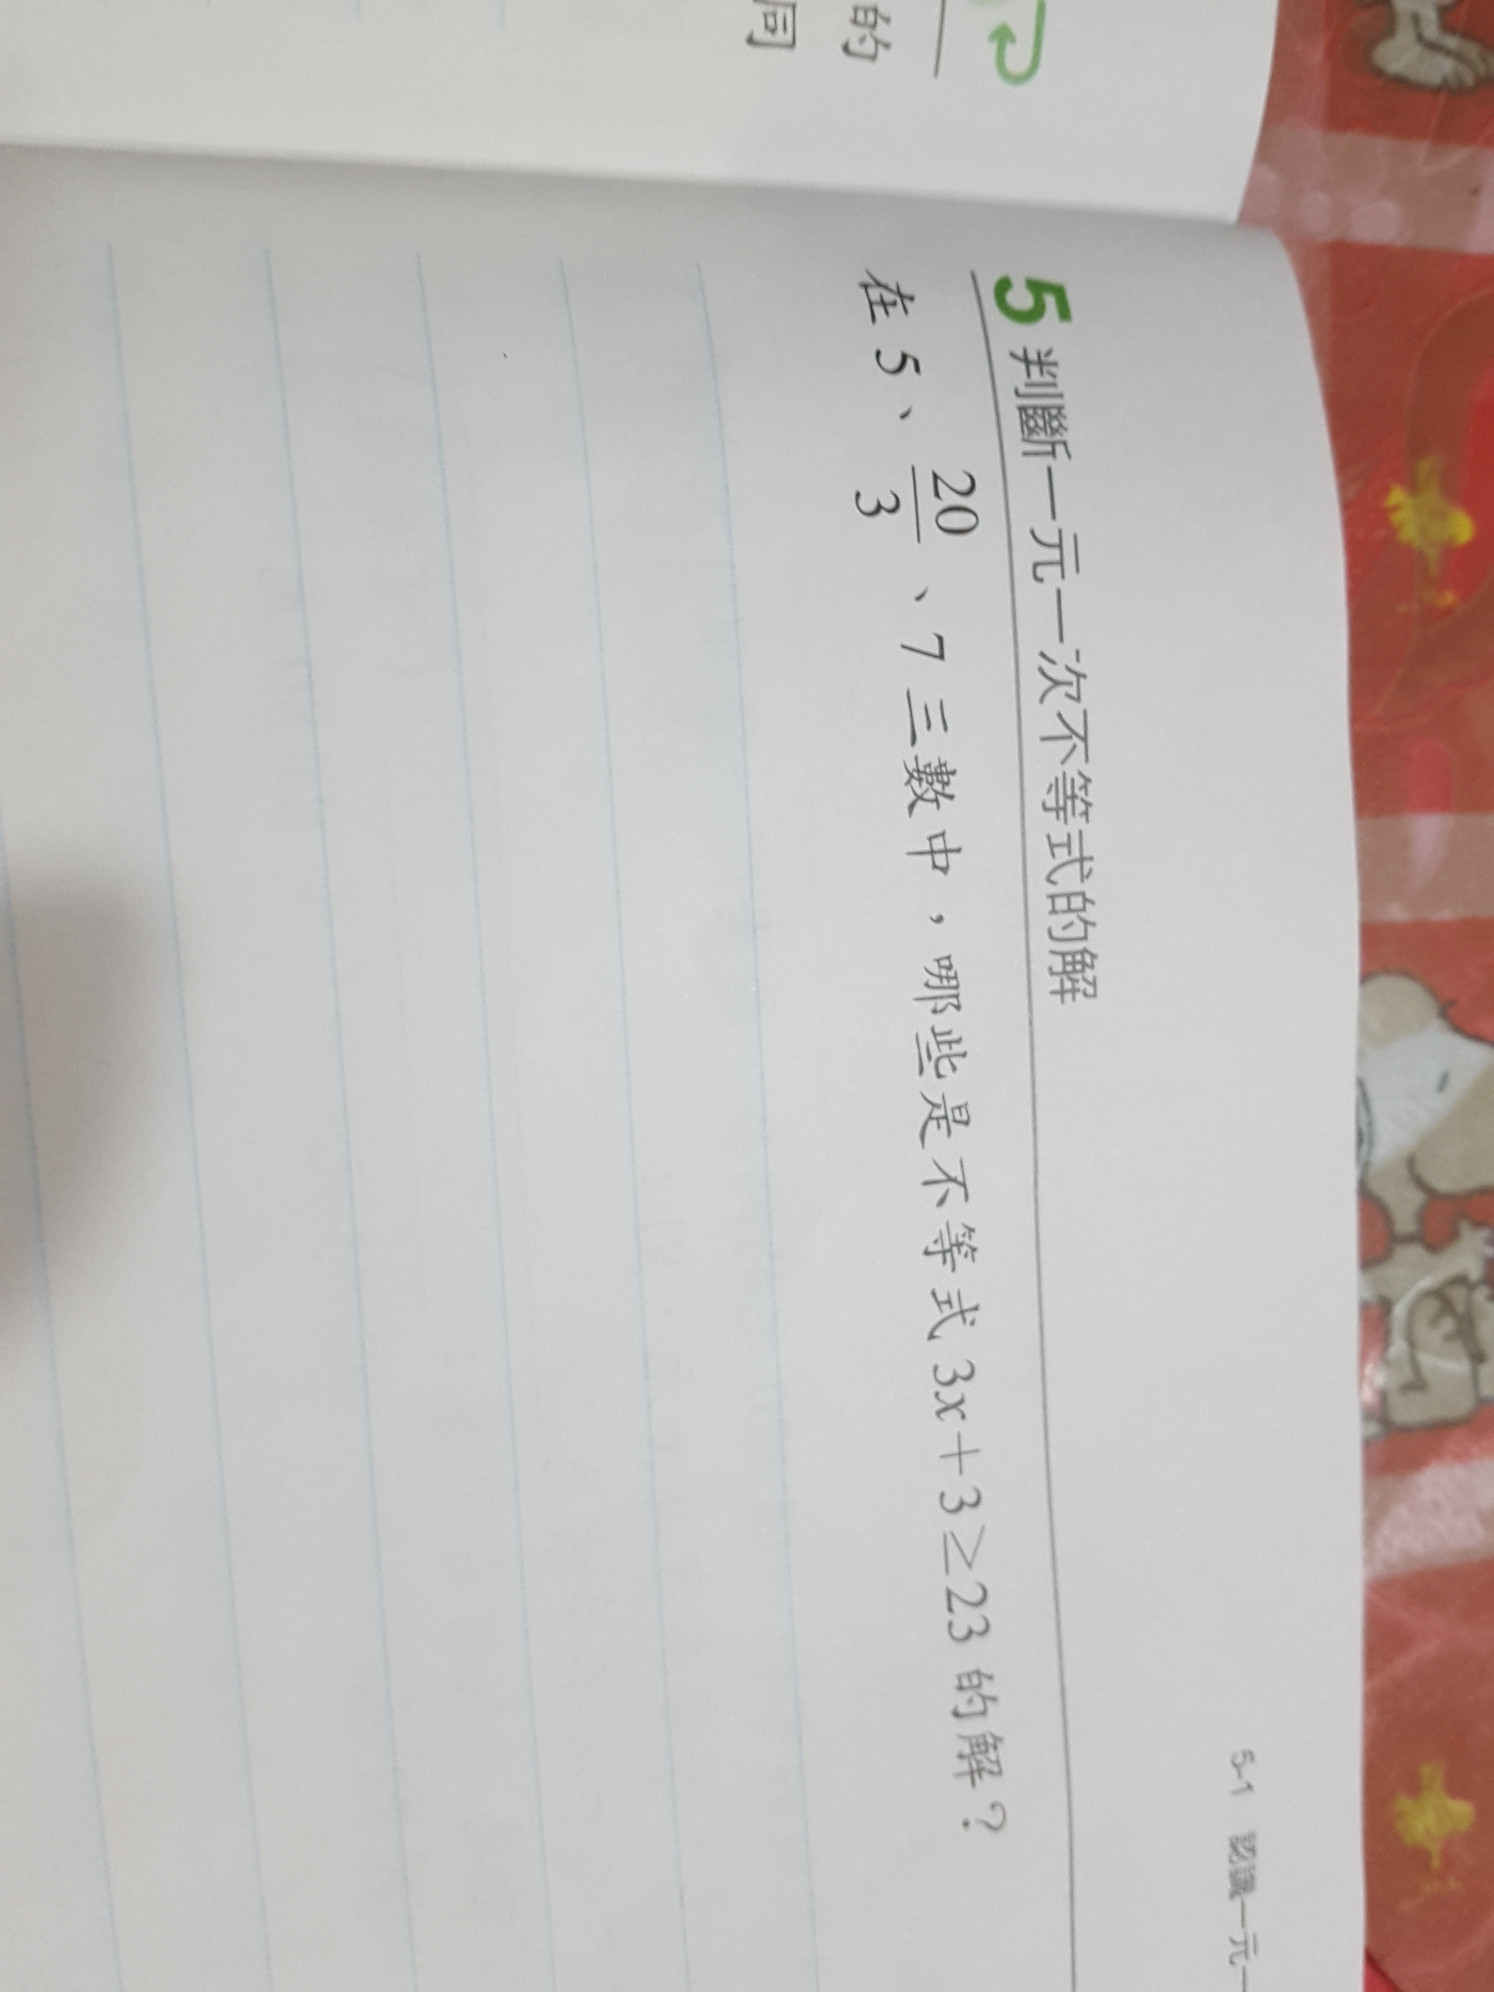 的
同
5-1 認識一元一
5 判斷一元一次不等式的解
在 5、20/3、7 三數中，哪些是不等式 3x+3≥23 的解？